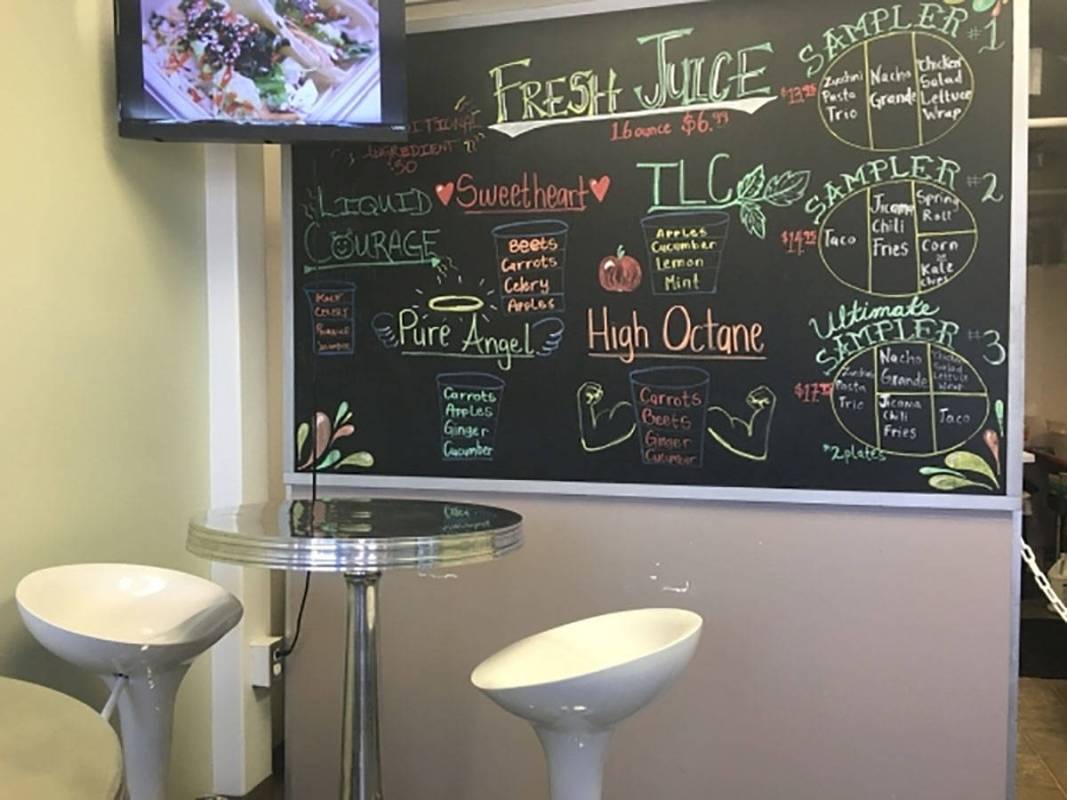 FRESH JUICE
16 ounce $6.99
INGREDIENT
.50
LIQUID
COURAGE
KALE
CELERY
Sweetheart
BEETS
Carrots
Celery
Apples
TLC
APPLES
CUCUMBER
Lemon
Mint
Pure Angel
Carrots
Apples
Ginger
Cucumber
High Octane
Carrots
Beets
Ginger
Cucumber
SAMPLER #1
$13.95
Zucchini
Pasta
Trio
Nacho
Grande
Chicken
Salad
Lettuce
Wrap
SAMPLER #2
$14.95
Taco
Jicama
Chili
Fries
Spring
Roll
Corn
or
Kale
Ultimate
SAMPLER #3
Zucchini
Pasta
Trio
Nacho
Grande
Chicken
Salad
Lettuce
Wrap
Jicama
Chili
Fries
Taco
*2 plates